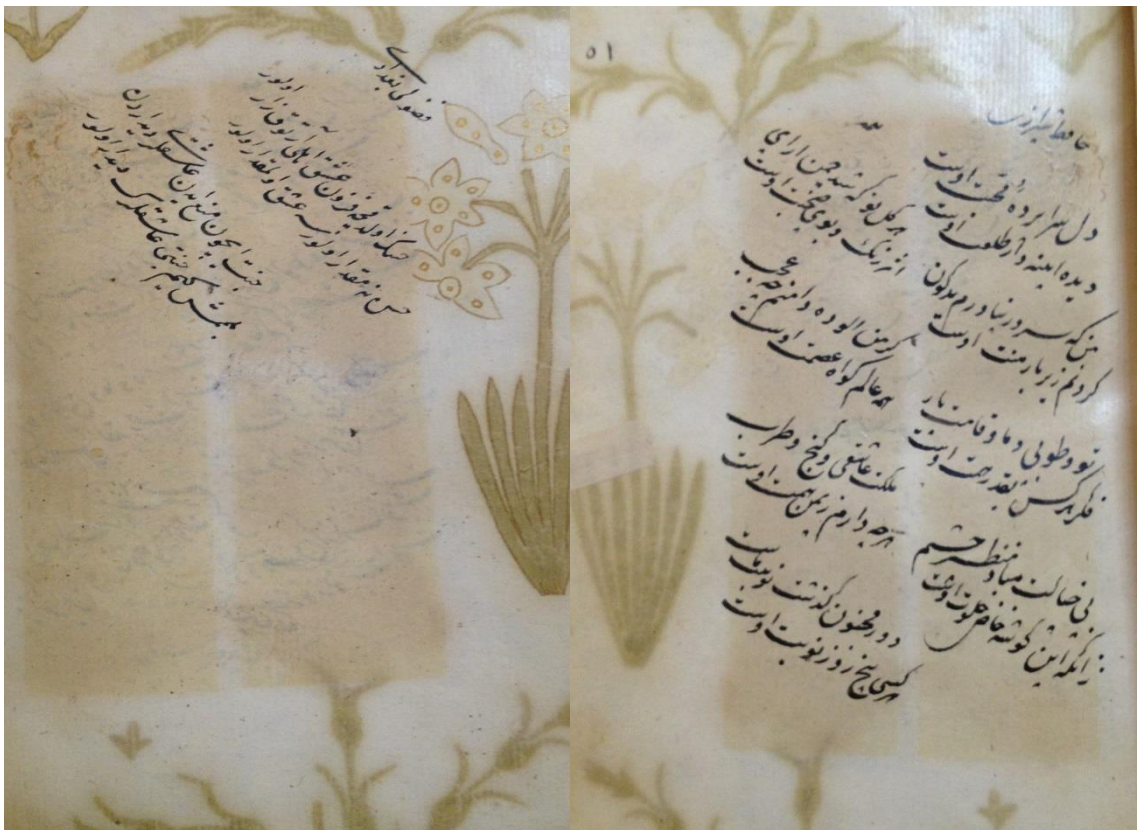 ٥١
حافظ شیرازی
دل سراپردهٔ محبت اوست
دیده اینه دار طلعت اوست
من که سر در نیاورم بدو کون
کردنم زیر بار منت اوست
تو و طوبی و ما و قامت یار
فکر هر کس بقدر همت اوست
بی خیالت مباد منظر چشم
زانکه این کوشه خاص خلوت اوست
هر کل نو که شد چمن ارای
اثر رنک و بوی صحبت اوست
کر من الوده دامنم چه عجب
همه عالم کواه عصمت اوست
ملکت عاشقی و کنج و طرب
هر چه دارم ز یمن همت اوست
دور مجنون کذشت نوبت ماست
هر کسی پنج روز نوبت اوست
فضولی بغدادی
حسنک اولدقجه فزون عشق اهلی ارتوق زار اولور
حسن نه مقدار اولورسه عشق اولمقدار اولور
جنت ایچون منع ایدن عاشقلری دیداردن
بلمه مش کیم جنتی عاشقلرک دیدار اولور